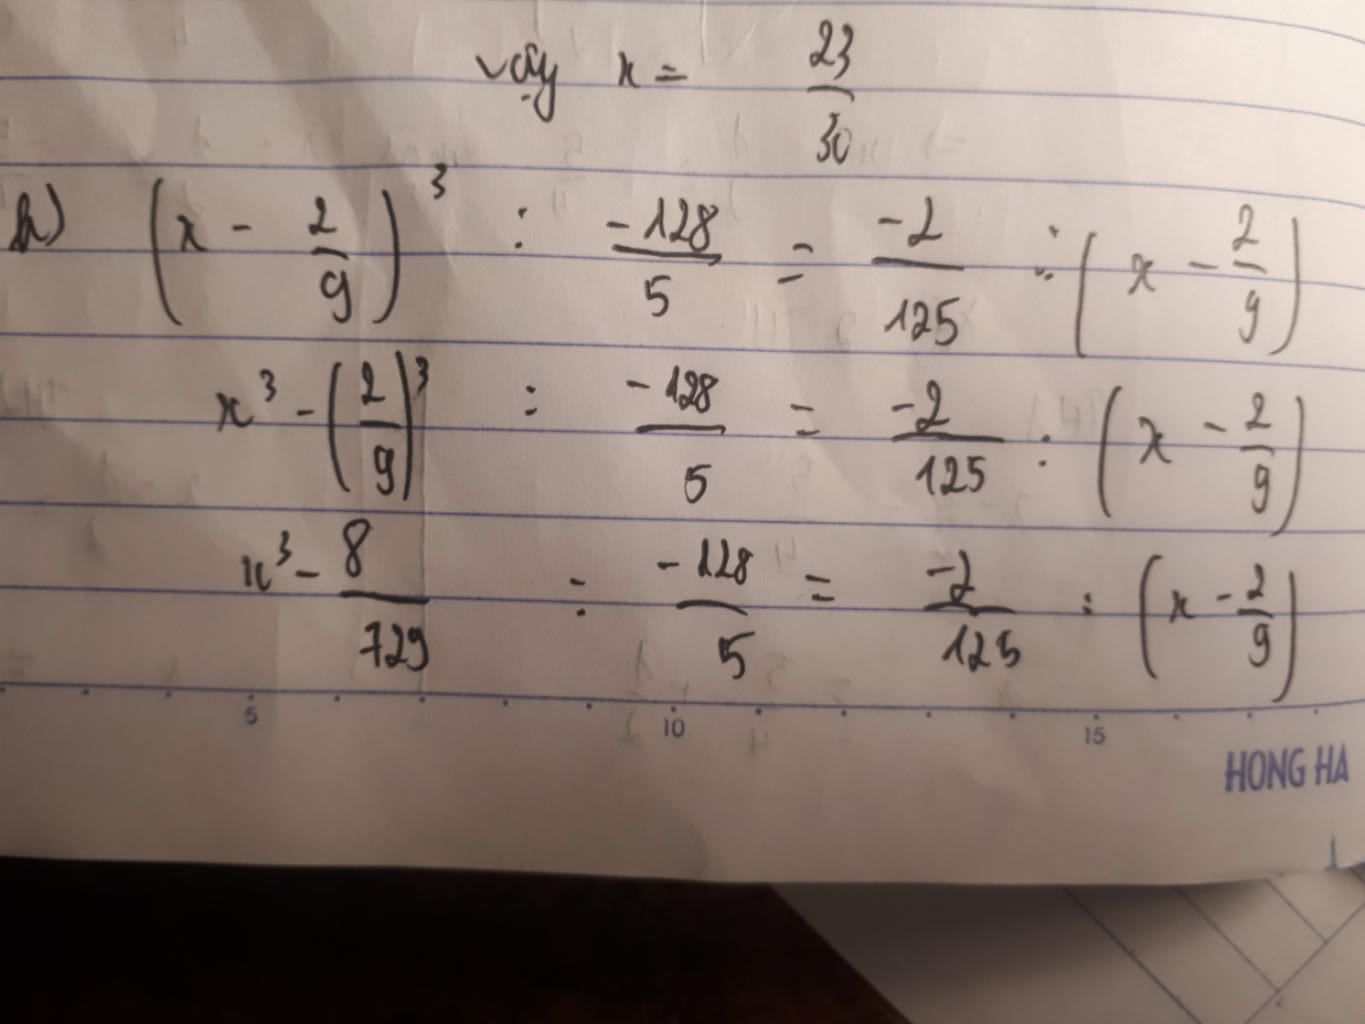 vậy x = 23/30
h) (x - 2/9)³ : -128/5 = -2/125 : (x - 2/9)
x³ - (2/9)³ : -128/5 = -2/125 : (x - 2/9)
x³ - 8/729 : -128/5 = -2/125 : (x - 2/9)
5 10 15
HONG HA